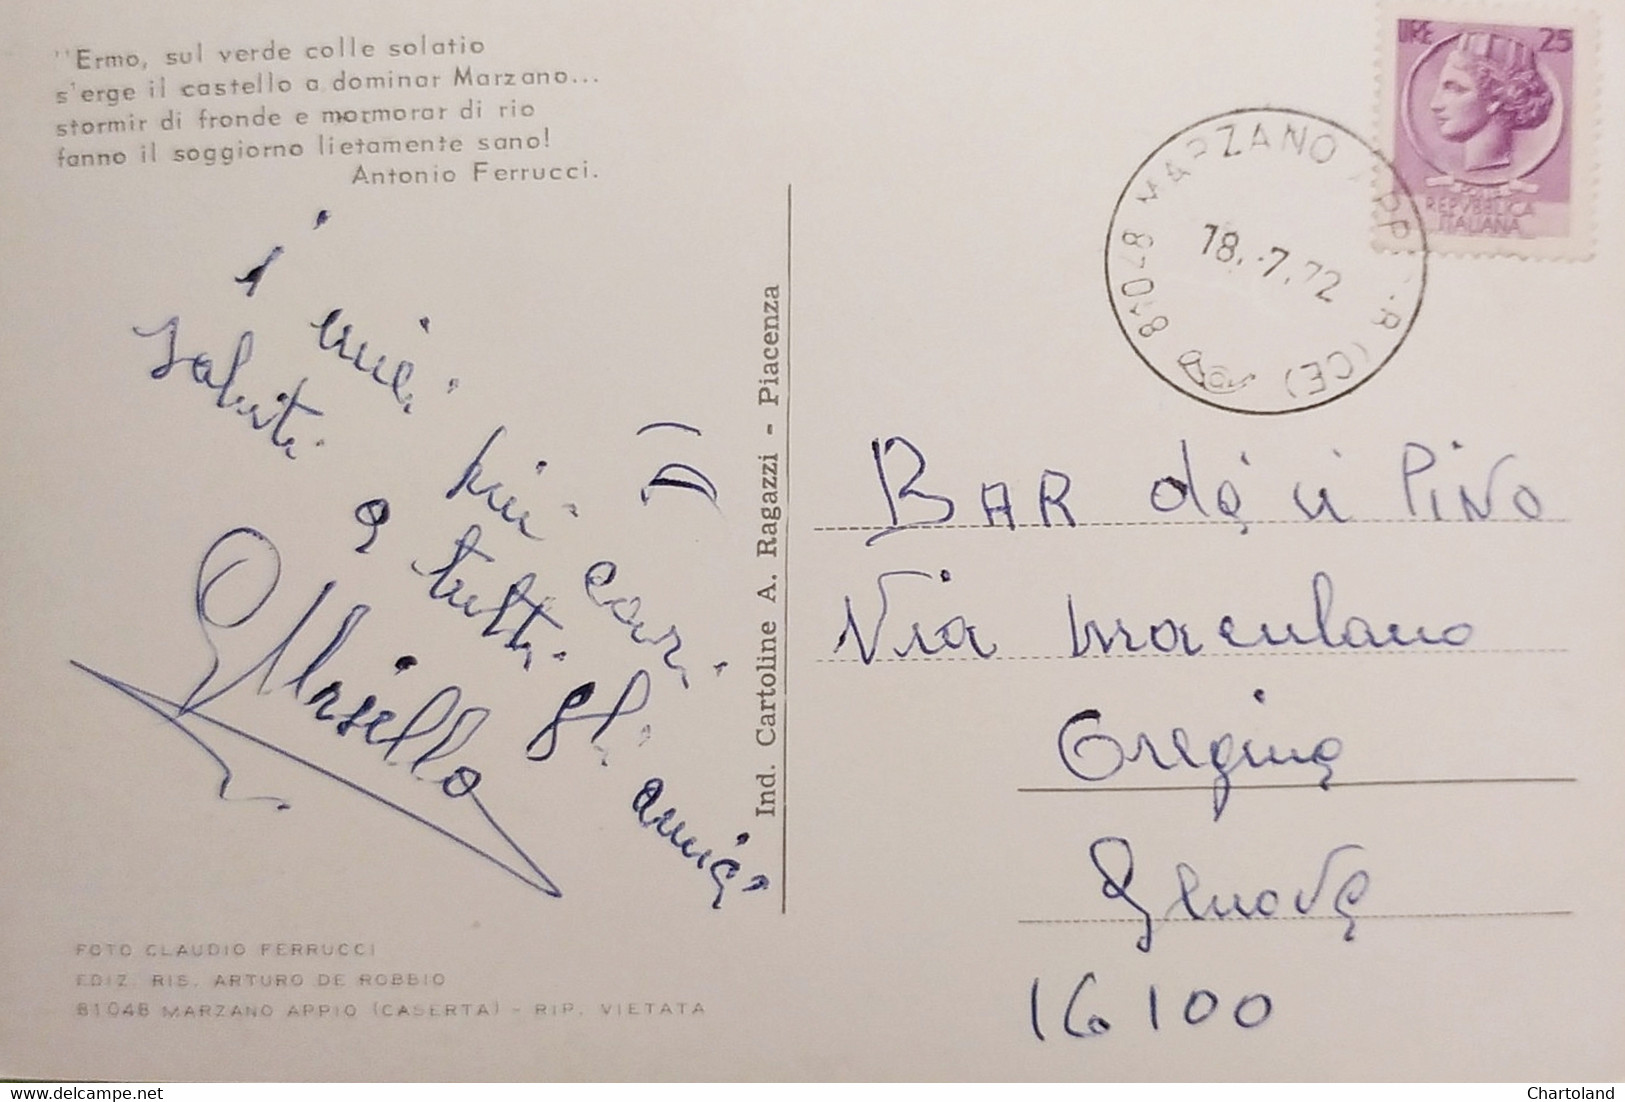 "Ermo, sul verde colle solatio
s'erge il castello a dominar Marzano...
stormir di fronde e mormorar di rio
fanno il soggiorno lietamente sano!
Antonio Ferrucci.
i miei più cari
saluti a tutti gli amici
Masiello
FOTO CLAUDIO FERRUCCI
EDIZ. RIS. ARTURO DE ROBBIO
81048 MARZANO APPIO (CASERTA) - RIP. VIETATA
Ind. Cartoline A. Ragazzi - Piacenza
LIRE 25
REPVBBLICA
ITALIANA
81048 MARZANO APPIO (CE)
18.-7.72
BAR dei Pino
Via Maculano
Oregina
Genova
16100
delcampe.net
Chartoland